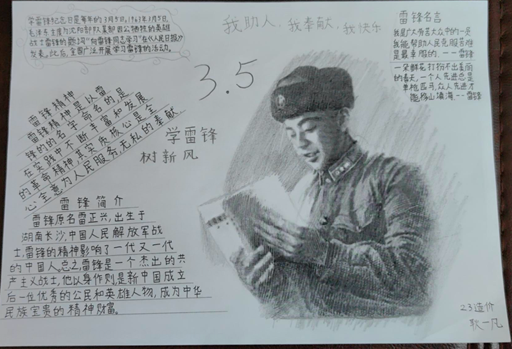 学雷锋纪念日是每年的3月5日,1963年3月5日
毛泽东主席为沈阳部队某部因公牺牲的英雄
战士雷锋的题词"向雷锋同志学习"在《人民日报》
发表,此后,全国广泛开展学习雷锋的活动。
我助人,我奉献,我快乐
雷锋名言
我是广大劳苦大众中的一员
我能帮助人民克服苦难
是最幸福的。--雷锋
一朵鲜花打扮不出美丽
的春天,一个人先进总是
单枪匹马,众人先进才
能移山填海--雷锋
3.5
学雷锋
树新风
雷锋精神
雷锋精神是以雷
锋的的名字命名的,是
在实践中不断丰富和发展
的革命精神其实质核心是全
心全意为人民服务无私的奉献
雷锋简介
雷锋原名雷正兴,出生于
湖南长沙,中国人民解放军战
士,雷锋的精神影响了一代又一代
的中国人总之,雷锋是一个杰出的共
产主义战士,他以身作则是新中国成立
后一位优秀的公民和英雄人物,成为中华
民族宝贵的精神财富。
23造价
耿一凡